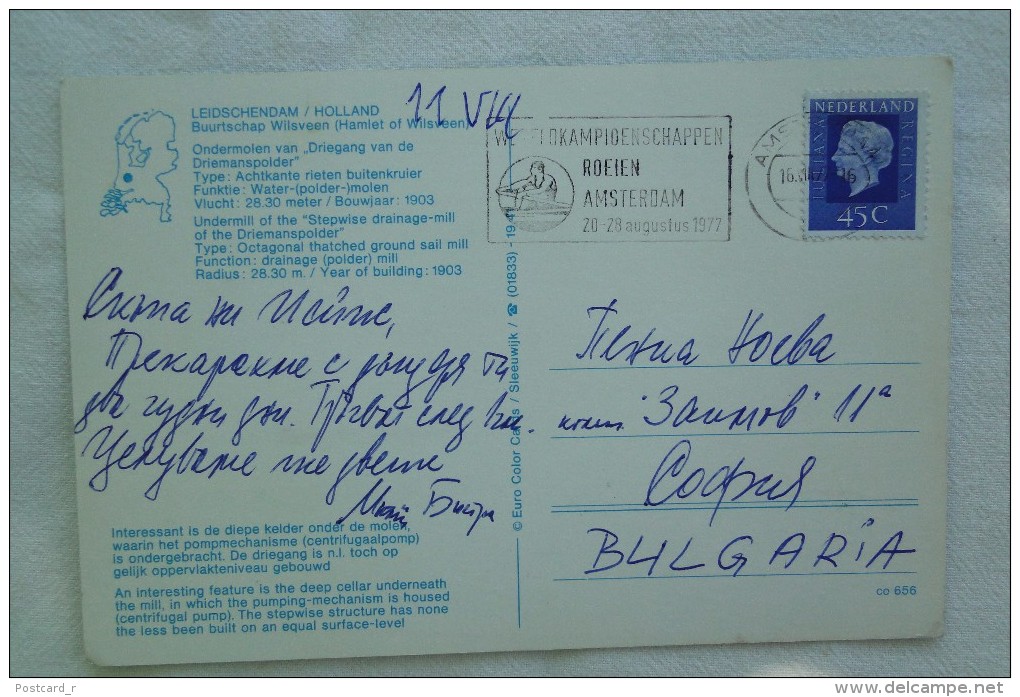 LEIDSCHENDAM / HOLLAND
Buurtschap Wilsveen (Hamlet of Wilsveen)
Ondermolen van „Driegang van de
Driemanspolder"
Type: Achtkante rieten buitenkruier
Funktie: Water-(polder-)molen
Vlucht: 28.30 meter / Bouwjaar: 1903
Undermill of the "Stepwise drainage-mill
of the Driemanspolder"
Type: Octagonal thatched ground sail mill
Function: drainage (polder) mill
Radius: 28.30 m. / Year of building: 1903
11 VIII
WERELDKAMPIOENSCHAPPEN
ROEIEN
AMSTERDAM
20-28 augustus 1977
NEDERLAND
JULIANA REGINA
45C
Скъпа ни
Прекарахме с дъщеря ти
два чудни дни. след
Целуваме те двете
Бистра
Пенка Ноева
"Заимов" 11а
София
BULGARIA
© Euro Color Cards / Sleeuwijk / ☎ (01833) - 19
Interessant is de diepe kelder onder de molen,
waarin het pompmechanisme (centrifugaalpomp)
is ondergebracht. De driegang is n.l. toch op
gelijk oppervlakteniveau gebouwd
An interesting feature is the deep cellar underneath
the mill, in which the pumping-mechanism is housed
(centrifugal pump). The stepwise structure has none
the less been built on an equal surface-level
co 656
Postcard_r
www.delcampe.net